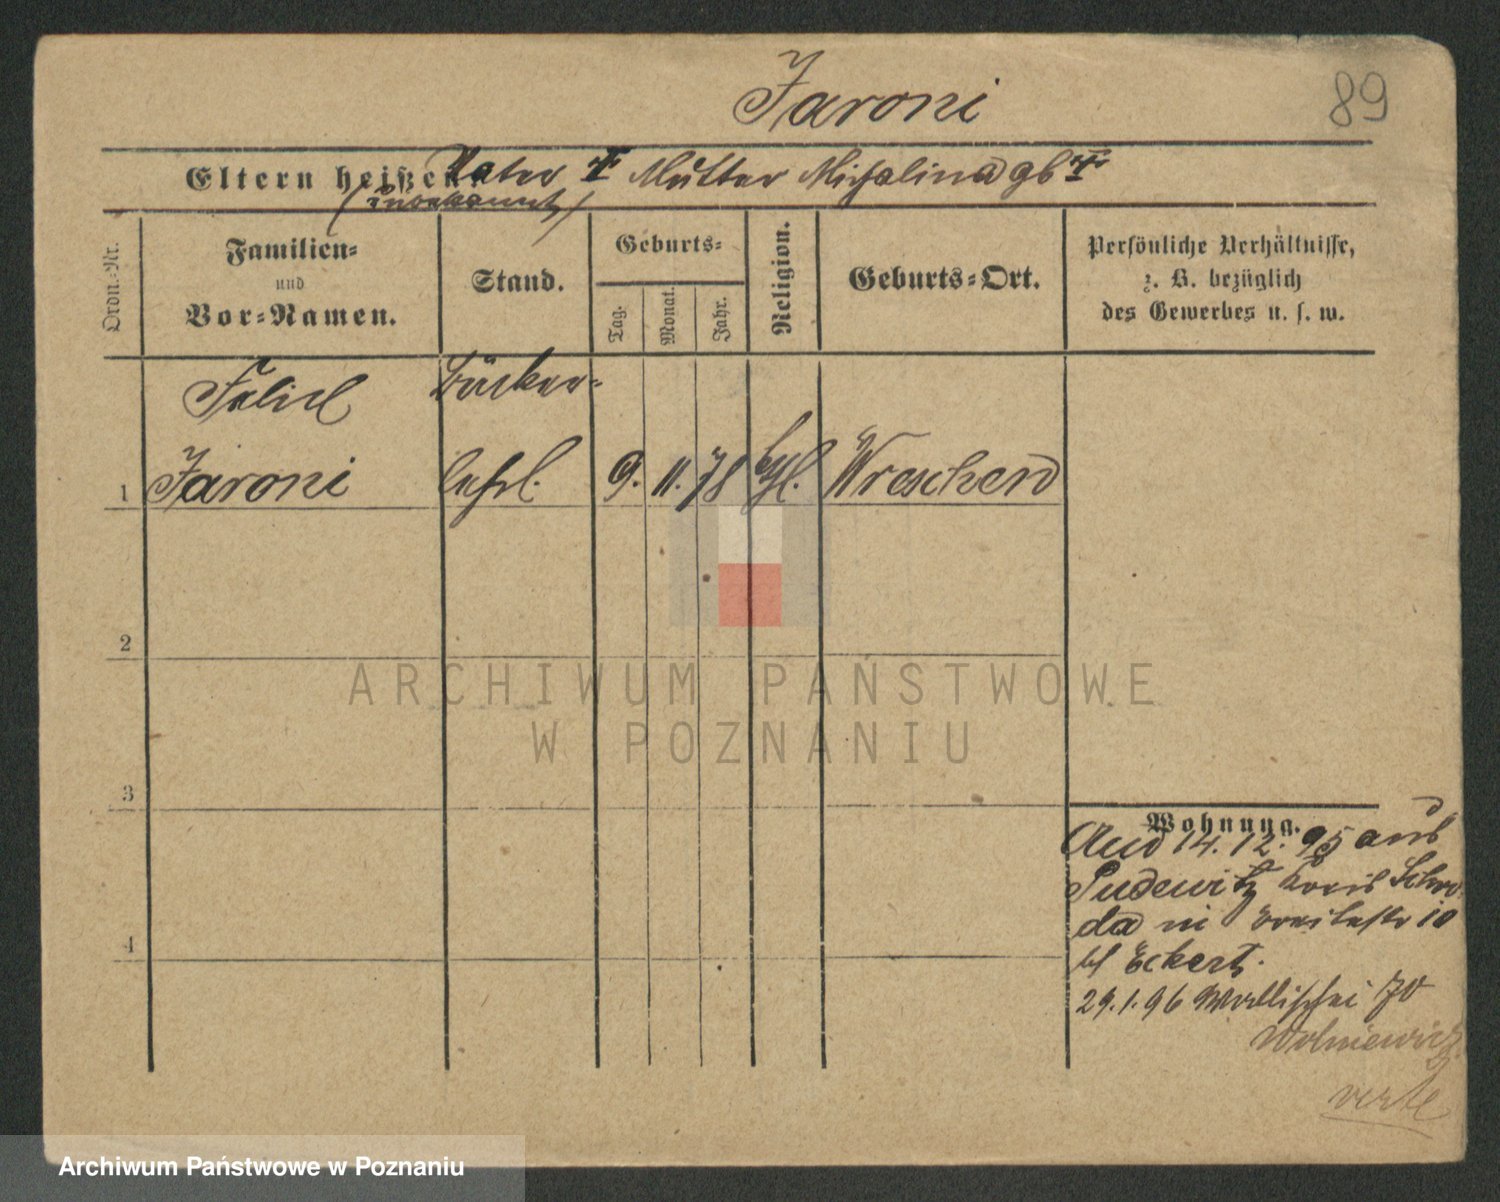 Jaroni
89
Eltern heißen Vater † Mutter Michalina gb †
(unbekannt)
Ordn.-Nr.
Familien-
und
Vor-Namen.
Stand.
Geburts-
Tag.
Monat.
Jahr.
Religion.
Geburts-Ort.
Persönliche Verhältnisse,
z. B. bezüglich
des Gewerbes u. s. w.
Felix Bäcker-
1 Jaroni lehrl. 9. 11. 78 khl. Wreschen
2
3
4
Wohnung.
14. 12. 95 aus
Pudewitz Kreis Schro
da in Breitestr 10
bei Eckert.
29.1.96 Wallischei 70
Wolniewicz
verte
ARCHIWUM PAŃSTWOWE
W POZNANIU
Archiwum Państwowe w Poznaniu